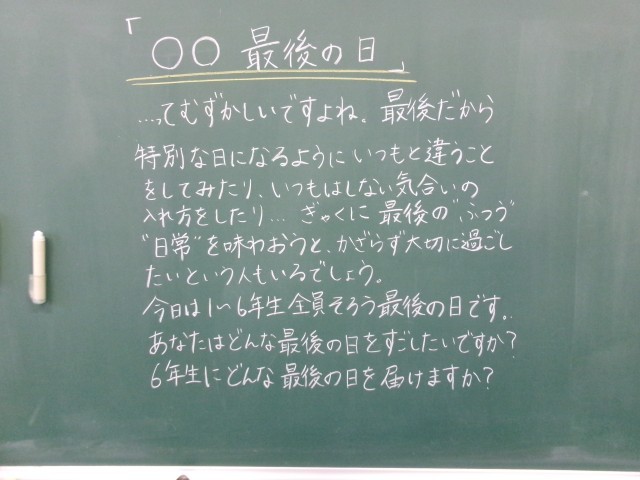 「○○ 最後の日」
…ってむずかしいですよね。最後だから
特別な日になるようにいつもと違うこと
をしてみたり、いつもはしない気合いの
入れ方をしたり… ぎゃくに 最後の"ふつう"
"日常"を味わおうと、かざらず大切に過ごし
たいという人もいるでしょう。
今日は1〜6年生全員そろう最後の日です。
あなたはどんな最後の日をすごしたいですか?
6年生にどんな最後の日を届けますか?